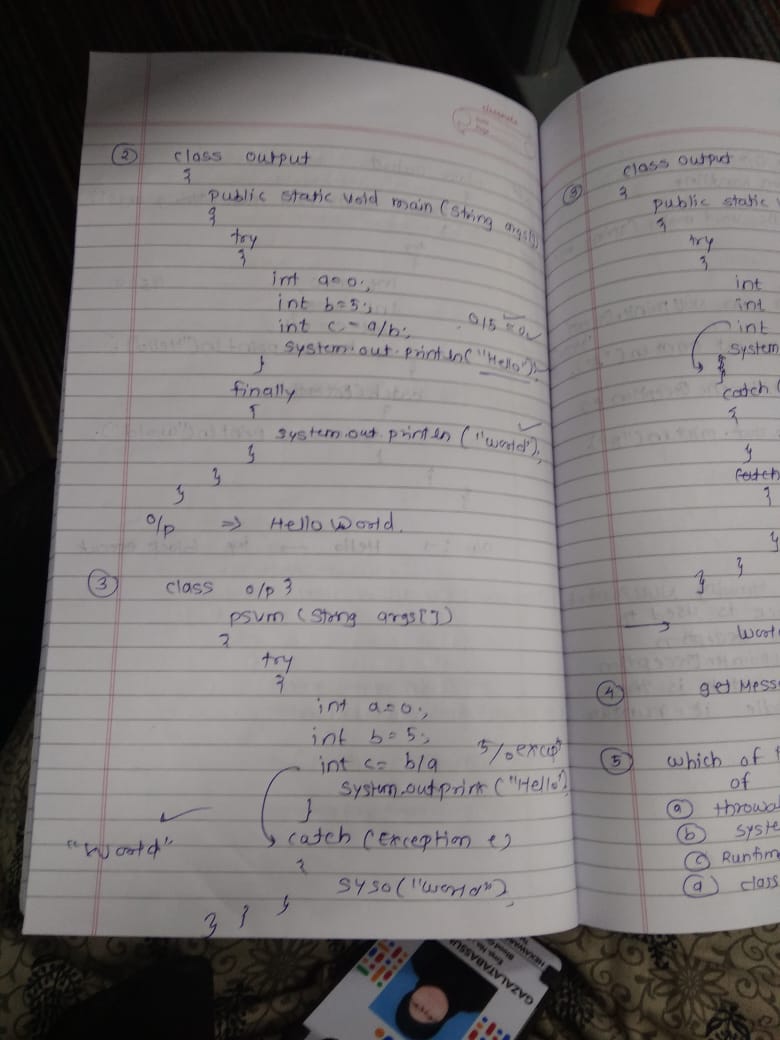 classmate
Date
Page
② class output
{
public static void main (String args[])
{
try
{
int a=0;
int b=5;
int c= a/b; 0/5 = 0
system.out.println("Hello");
}
finally
{
system.out.println ("world");
}
}
}
o/p ⇒ Hello World.
③ class o/p {
psvm (String args[])
{
try
{
int a=0;
int b=5;
int c= b/a 5/0 excep
system.out.print ("Hello")
}
catch (Exception e)
"World"
{
syso("world");
} } }
③ class output
{
public static
{
try
{
int
int
int
system
}
catch (
{
}
{
}
}
}
→ World
④ get Mess
⑤ which of
of
ⓐ throwa
ⓑ syste
ⓒ Runtim
ⓓ class
GAZALATABASSU
Emp. No.
HEXAWAR
Blood G